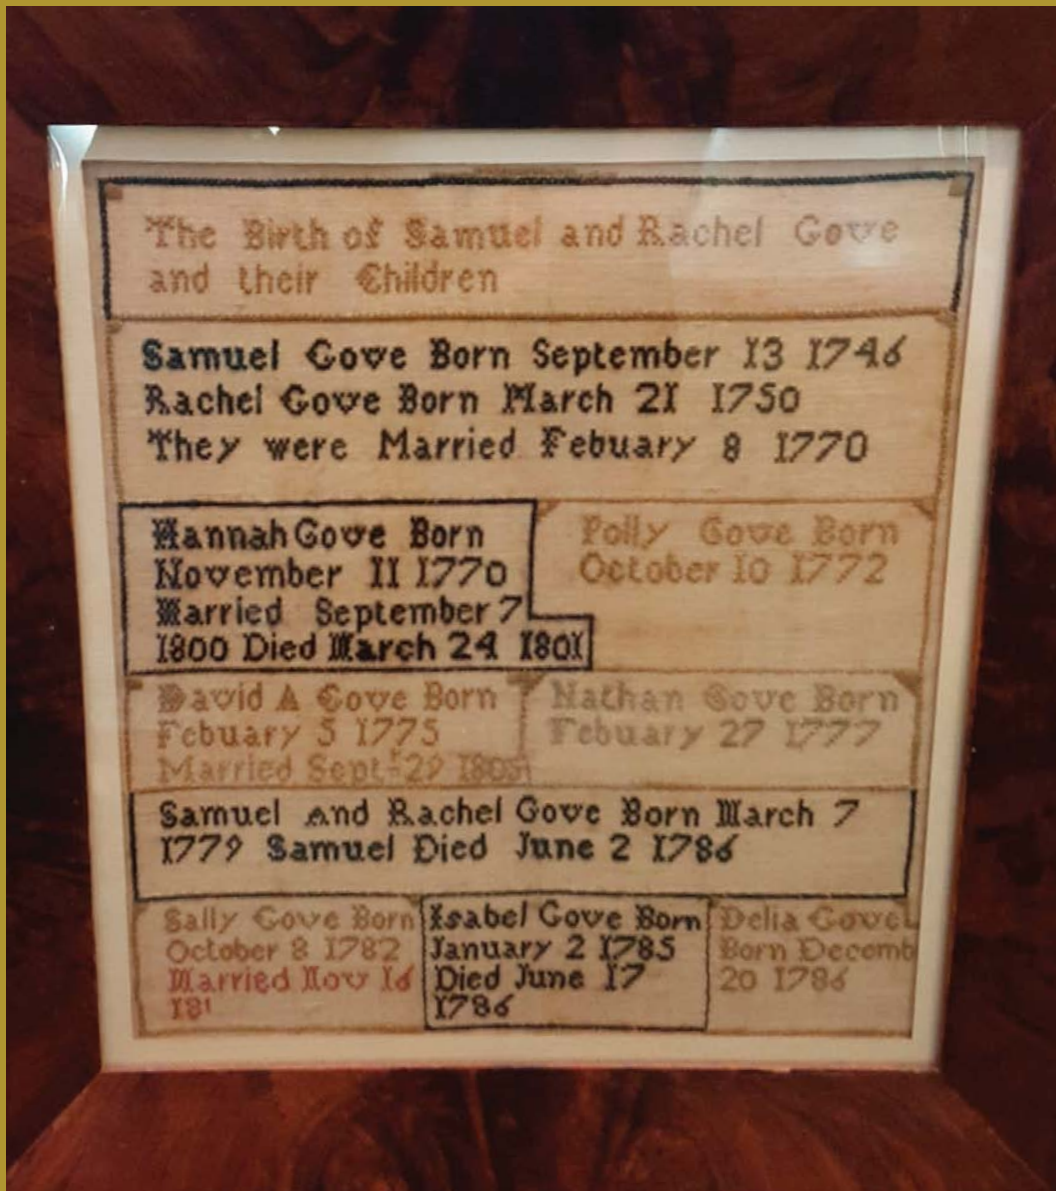 The Birth of Samuel and Rachel Gove
and their Children
Samuel Gove Born September 13 1746
Rachel Gove Born March 21 1750
They were Married Febuary 8 1770
Hannah Gove Born
November 11 1770
Married September 7
1800 Died March 24 1801
Polly Gove Born
October 10 1772
David A Gove Born
Febuary 5 1775
Married Sept 29 1805
Nathan Gove Born
Febuary 27 1777
Samuel And Rachel Gove Born March 7
1779 Samuel Died June 2 1786
Sally Gove Born
October 8 1782
Married Nov 16
Isabel Gove Born
January 2 1785
Died June 17
1786
Delia Gove
Born Decemb
20 1786